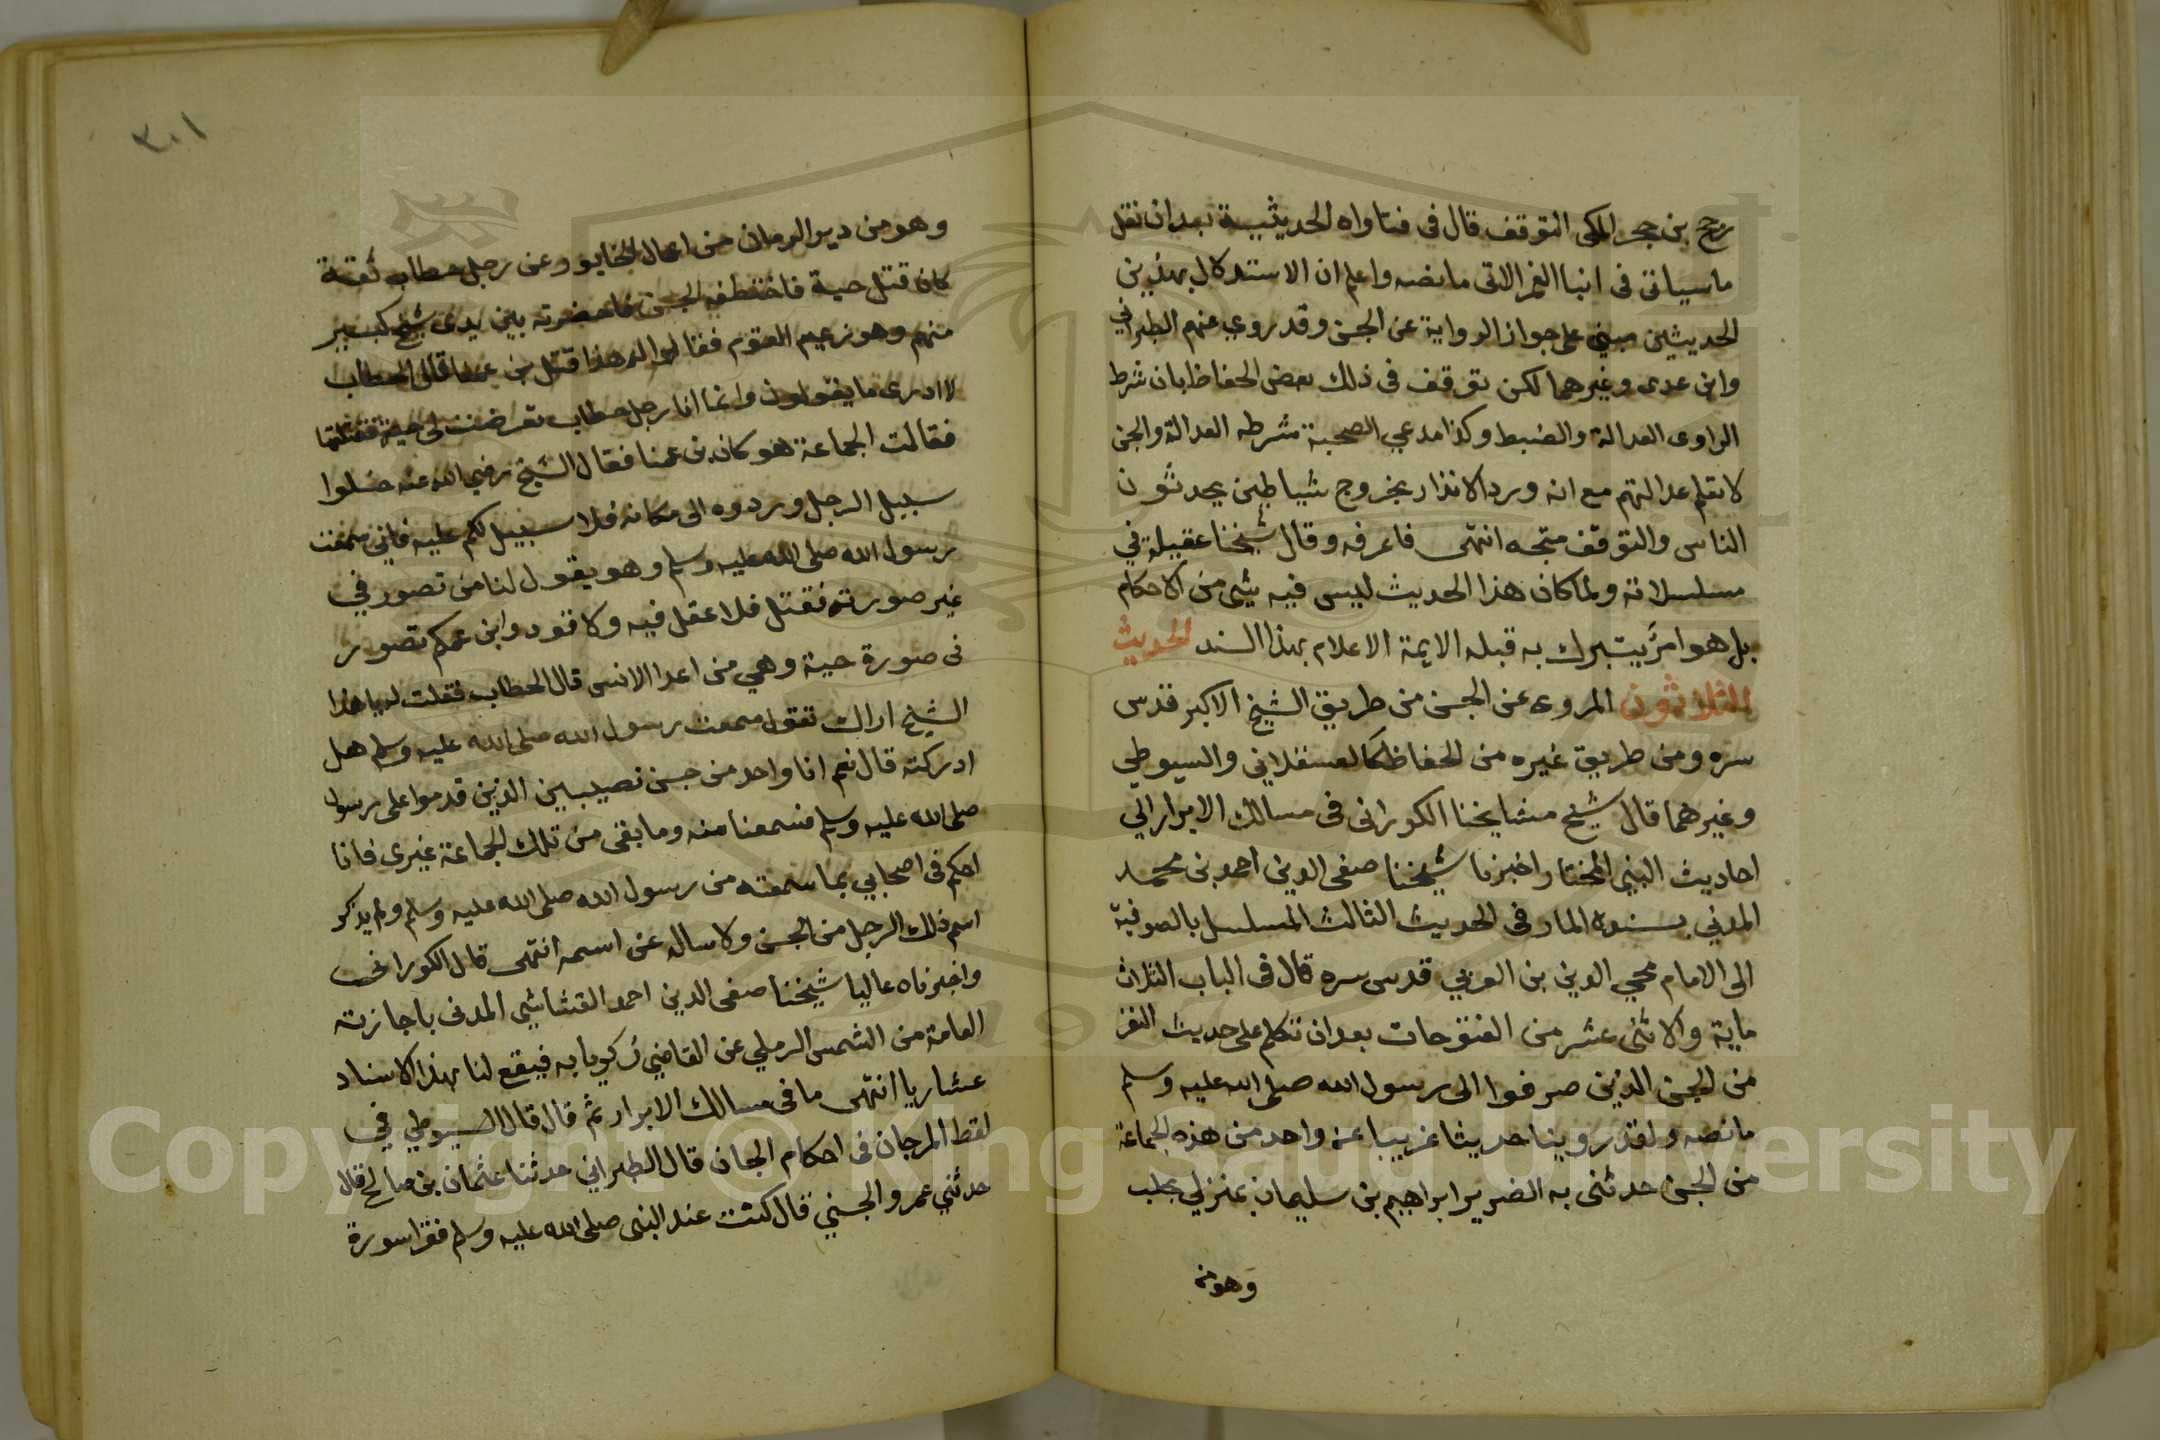 رجح بن حجر المكي التوقف قال في فتاواه الحديثية بعد ان نقل
ما سياتي في انبا الغمر الاتي ما نصه واعلم ان الاستدلال بهذين
الحديثين مبني على جواز الرواية عن الجن وقد روي عنهم الطبراني
وابن عدي وغيرهما لكن توقف في ذلك بعض الحفاظ بان شرط
الراوي العدالة والضبط وكذا مدعي الصحبة شرطه العدالة والجن
لا تعلم عدالتهم مع انه ورد الانذار بخروج شياطين يحدثون
الناس والتوقف متجه انتهى فاعرفه وقال شيخنا عقيلة في
مسلسلاته ولما كان هذا الحديث ليس فيه شي من الاحكام
بل هو امر يتبرك به قبله الايمة الاعلام بهذا السند الحديث
الثلاثون المروي عن الجن من طريق الشيخ الاكبر قدس
سره ومن طريق غيره من الحفاظ كالعسقلاني والسيوطي
وغيرهما قال شيخ مشايخنا الكوراني في مسالك الابرار الي
احاديث النبي المختار اخبرنا شيخنا صفي الدين احمد بن محمد
المدني بسنده المار في الحديث الثالث المسلسل بالصوفية
الى الامام محيي الدين بن العربي قدس سره قال في الباب الثلاث
ماية والاثني عشر من الفتوحات بعد ان تكلم على حديث النفر
من الجن الذين صرفوا الى رسول الله صلى الله عليه وسلم
ما نصه ولقد روينا حديثا غريبا عن واحد من هذه الجماعة
من الجن حدثني به الضرير ابراهيم بن سليمان بمنزلي بحلب
وهو من
٣٠١
وهو من دير الرمان من اعمال الخابور وعن رجل حطاب ثقة
كان قتل حية فاختطفه الجن فاحضرته بين يدي شيخ كبير
منهم وهو زعيم القوم فقالوا له هذا قتل بن عمنا قال الحطاب
لا ادري ما يقولون وانما انا رجل حطاب تعرضت لي حية فقتلتها
فقالت الجماعة هو كان بن عمنا فقال الشيخ رضي الله عنه خلوا
سبيل الرجل وردوه الى مكانه فلا سبيل لكم عليه فاني سمعت
رسول الله صلى الله عليه وسلم وهو يقول لنا من تصور في
غير صورته فقتل فلا عقل فيه ولا قود وابن عمكم تصور
في صورة حية وهي من اعدا الانس قال الحطاب فقلت له يا هذا
الشيخ اراك تقول سمعت رسول الله صلى الله عليه وسلم هل
ادركته قال نعم انا واحد من جن نصيبين الذين قدموا على رسول
صلى الله عليه وسلم فسمعنا منه وما بقي من تلك الجماعة غيري فانا
احكم في اصحابي بما سمعته من رسول الله صلى الله عليه وسلم ولم يذكر
اسم ذلك الرجل من الجن ولا ساله عن اسمه انتهى قال الكوراني
واخبرناه عاليا شيخنا صفي الدين احمد القشاشي المدني باجازته
العامة من الشمس الرملي عن القاضي زكريا به فيقع لنا بهذا الاسناد
عشاريا انتهى ما في مسالك الابرار ثم قال قال السيوطي في
لقط المرجان في احكام الجان قال الطبراني حدثنا عثمان بن صالح قال
حدثني عمرو الجني قال كنت عند النبي صلى الله عليه وسلم فقرا سورة
Copyright © King Saud University